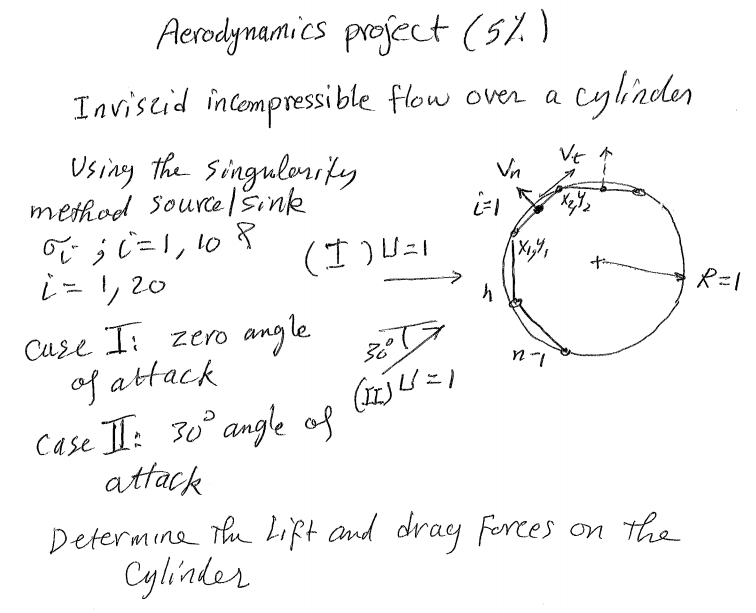 Aerodynamics project (5%)
Inviscid incompressible flow over a cylinder
Using the singularity
method source/sink
σi ; i=1, 10 &
i= 1, 20
(I) U=1
Vn
Vt
i=1
x2,y2
x1,y1
R=1
n
n-1
case I: zero angle
of attack
30°
(II) U=1
case II: 30° angle of
attack
Determine the Lift and drag Forces on the
Cylinder